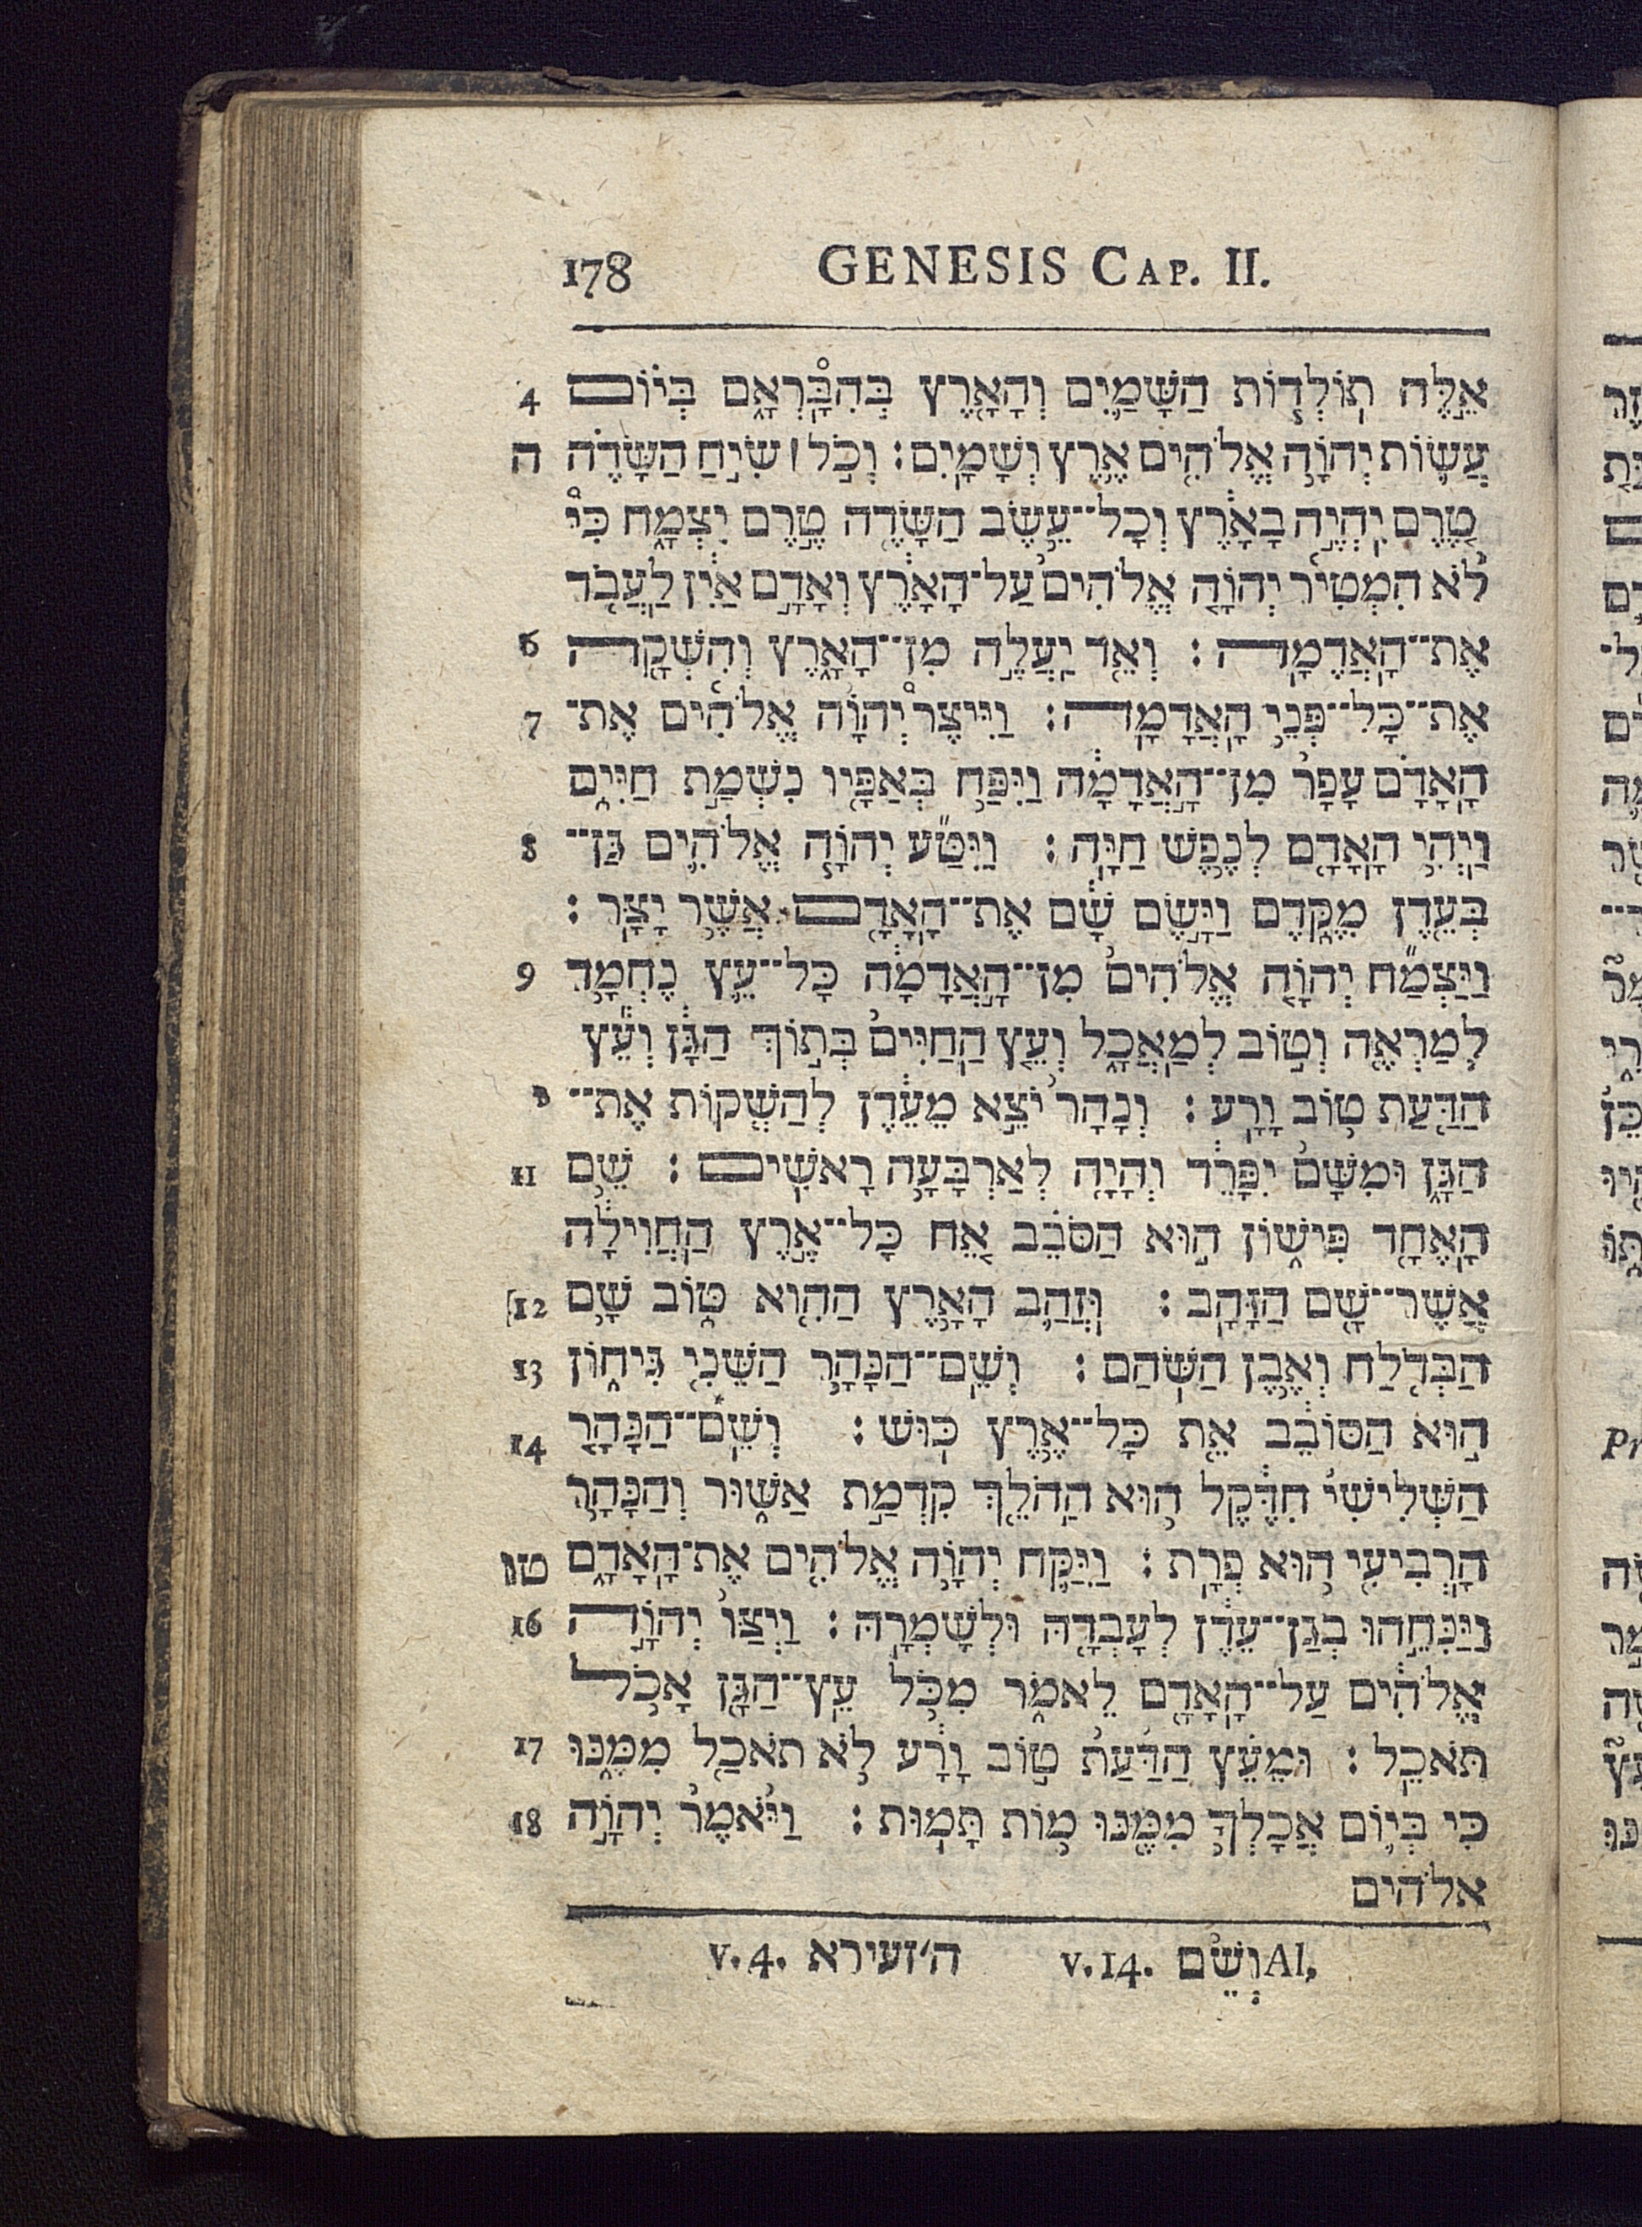 178 GENESIS CAP. II.
אֵלֶּה תוֹלְדוֹת הַשָּׁמַיִם וְהָאָרֶץ בְּהִבָּרְאָם בְּיוֹם 4
עֲשׂוֹת יְהוָֹה אֱלֹהִים אֶרֶץ וְשָׁמָיִם׃ וְכֹל ׀ שִׂיחַ הַשָּׂדֶה ה
טֶרֶם יִהְיֶה בָאָרֶץ וְכָל־עֵשֶׂב הַשָּׂדֶה טֶרֶם יִצְמָח כִּי
לֹא הִמְטִיר יְהוָֹה אֱלֹהִים עַל־הָאָרֶץ וְאָדָם אַיִן לַעֲבֹד
אֶת־הָאֲדֶמָה׃ וְאֵד יַעֲלֶה מִן־הָאָרֶץ וְהִשְׁקָה 6
אֶת־כָּל־פְּנֵי הָאֲדָמָה׃ וַיִּיצֶר יְהוָֹה אֱלֹהִים אֶת־ 7
הָאָדָם עָפָר מִן־הָאֲדָמָה וַיִּפַּח בְּאַפָּיו נִשְׁמַת חַיִּים
וַיְהִי הָאָדָם לְנֶפֶשׁ חַיָּה׃ וַיִּטַּע יְהוָֹה אֱלֹהִים גַּן־ 8
בְּעֵדֶן מִקֶּדֶם וַיָּשֶׂם שָׁם אֶת־הָאָדָם אֲשֶׁר יָצָר׃
וַיַּצְמַח יְהוָֹה אֱלֹהִים מִן־הָאֲדָמָה כָּל־עֵץ נֶחְמָד 9
לְמַרְאֶה וְטוֹב לְמַאֲכָל וְעֵץ הַחַיִּים בְּתוֹךְ הַגָּן וְעֵץ
הַדַּעַת טוֹב וָרָע׃ וְנָהָר יֹצֵא מֵעֵדֶן לְהַשְׁקוֹת אֶת־
הַגָּן וּמִשָּׁם יִפָּרֵד וְהָיָה לְאַרְבָּעָה רָאשִׁים׃ שֵׁם 11
הָאֶחָד פִּישׁוֹן הוּא הַסֹּבֵב אֵח כָּל־אֶרֶץ הַחֲוִילָה
אֲשֶׁר־שָׁם הַזָּהָב׃ וּזֲהַב הָאָרֶץ הַהִוא טוֹב שָׁם 12
הַבְּדֹלַח וְאֶבֶן הַשֹּׁהַם׃ וְשֵׁם־הַנָּהָר הַשֵּׁנִי גִּיחוֹן 13
הוּא הַסּוֹבֵב אֵת כָּל־אֶרֶץ כּוּשׁ׃ וְשֵׁם־הַנָּהָר 14
הַשְּׁלִישִׁי חִדֶּקֶל הוּא הַהֹלֵךְ קִדְמַת אַשּׁוּר וְהַנָּהָר
הָרְבִיעִי הוּא פְרָת׃ וַיִּקַּח יְהוָֹה אֱלֹהִים אֶת־הָאָדָם טו
וַיַּנִּחֵהוּ בְגַן־עֵדֶן לְעָבְדָהּ וּלְשָׁמְרָהּ׃ וַיְצַו יְהוָֹה 16
אֱלֹהִים עַל־הָאָדָם לֵאמֹר מִכֹּל עֵץ־הַגָּן אָכֹל
תֹּאכֵל׃ וּמֵעֵץ הַדַּעַת טוֹב וָרָע לֹא תֹאכַל מִמֶּנּוּ 17
כִּי בְּיוֹם אֲכָלְךָ מִמֶּנּוּ מוֹת תָּמוּת׃ וַיֹּאמֶר יְהוָֹה 18
אלהים
v. 4. ה׳ זעירא v. 14. וְשֵׁם Al.